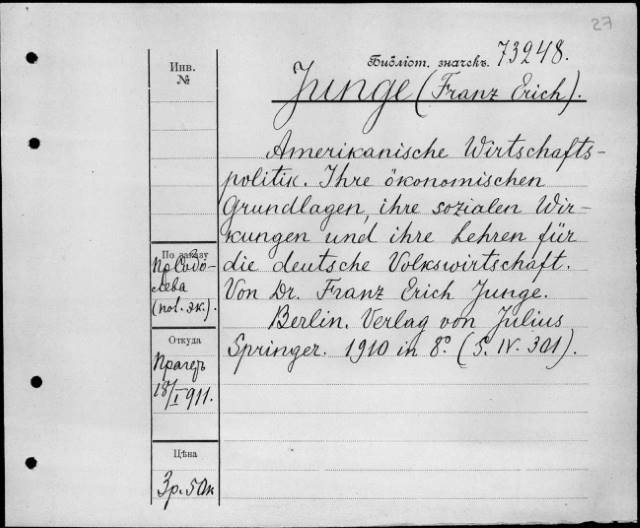 27
Библіот. значекъ 73248.
Инв.
№
Junge (Franz Erich).
Amerikanische Wirtschafts-
politik. Ihre ökonomischen
Grundlagen, ihre sozialen Wir-
kungen und ihre Lehren für
die deutsche Volkswirtschaft.
Von Dr. Franz Erich Junge.
Berlin. Verlag von Julius
Springer. 1910 in 8º. (S. IV. 301).
По заказу
(pol. эк.).
Откуда
Прагеръ
18/I 911.
Цѣна
3р. 50к